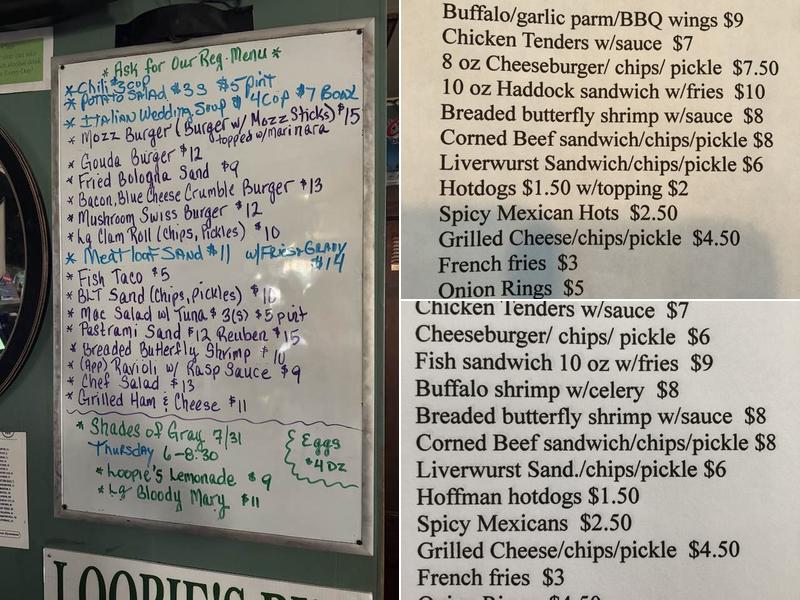 * Ask for Our Reg. Menu *
* Chili $3 cup
* Potato Salad $3 S $5 pint
* Italian Wedding Soup $4 Cup $7 Bowl
* Mozz Burger (Burger w/ Mozz Sticks) $15
topped w/ marinara
* Gouda Burger $12
* Fried Bologna Sand $9
* Bacon, Blue Cheese Crumble Burger $13
* Mushroom Swiss Burger $12
* Lg Clam Roll (Chips, Pickles) $10
* Meatloaf Sand $11 w/Fries+Gravy
$14
* Fish Taco $5
* BLT Sand (Chips, Pickles) $10
* Mac Salad w/ Tuna $3(s) $5 pint
* Pastrami Sand $12 Reuben $15
* Breaded Butterfly Shrimp $10
* (App) Ravioli w/ Rasp Sauce $9
* Chef Salad $13
* Grilled Ham & Cheese $11
* Shades of Gray 7/31
Thursday 6-8:30
* Loopie's Lemonade $9
* Lg Bloody Mary $11
Eggs
$4 DZ
LOOPIE'S
Buffalo/garlic parm/BBQ wings $9
Chicken Tenders w/sauce $7
8 oz Cheeseburger/ chips/ pickle $7.50
10 oz Haddock sandwich w/fries $10
Breaded butterfly shrimp w/sauce $8
Corned Beef sandwich/chips/pickle $8
Liverwurst Sandwich/chips/pickle $6
Hotdogs $1.50 w/topping $2
Spicy Mexican Hots $2.50
Grilled Cheese/chips/pickle $4.50
French fries $3
Onion Rings $5
Chicken Tenders w/sauce $7
Cheeseburger/ chips/ pickle $6
Fish sandwich 10 oz w/fries $9
Buffalo shrimp w/celery $8
Breaded butterfly shrimp w/sauce $8
Corned Beef sandwich/chips/pickle $8
Liverwurst Sand./chips/pickle $6
Hoffman hotdogs $1.50
Spicy Mexicans $2.50
Grilled Cheese/chips/pickle $4.50
French fries $3